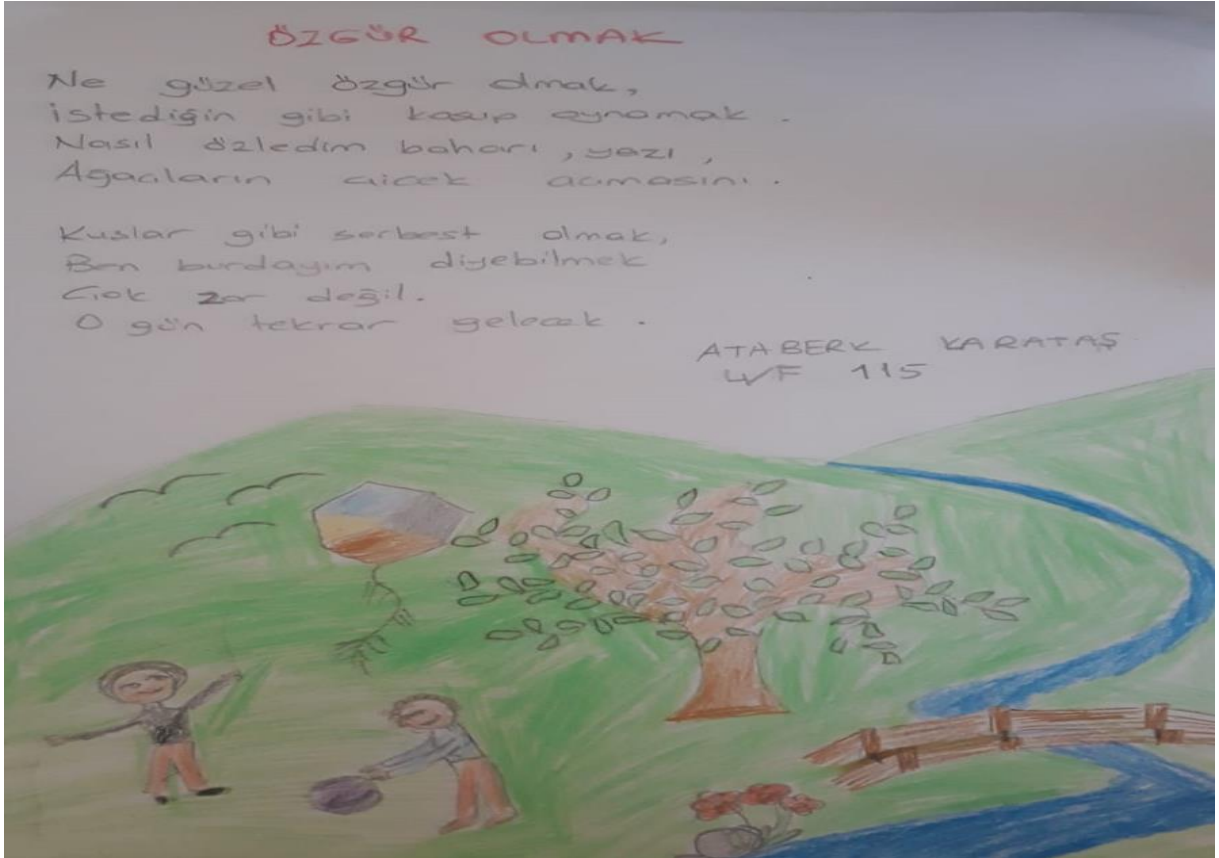 ÖZGÜR OLMAK
Ne güzel özgür olmak,
İstediğin gibi koşup oynamak.
Nasıl özledim baharı, yazı,
Ağaçların çiçek açmasını.
Kuşlar gibi serbest olmak,
Ben burdayım diyebilmek
Çok zor değil.
O gün tekrar gelecek.
ATABERK KARATAŞ
4/F 115